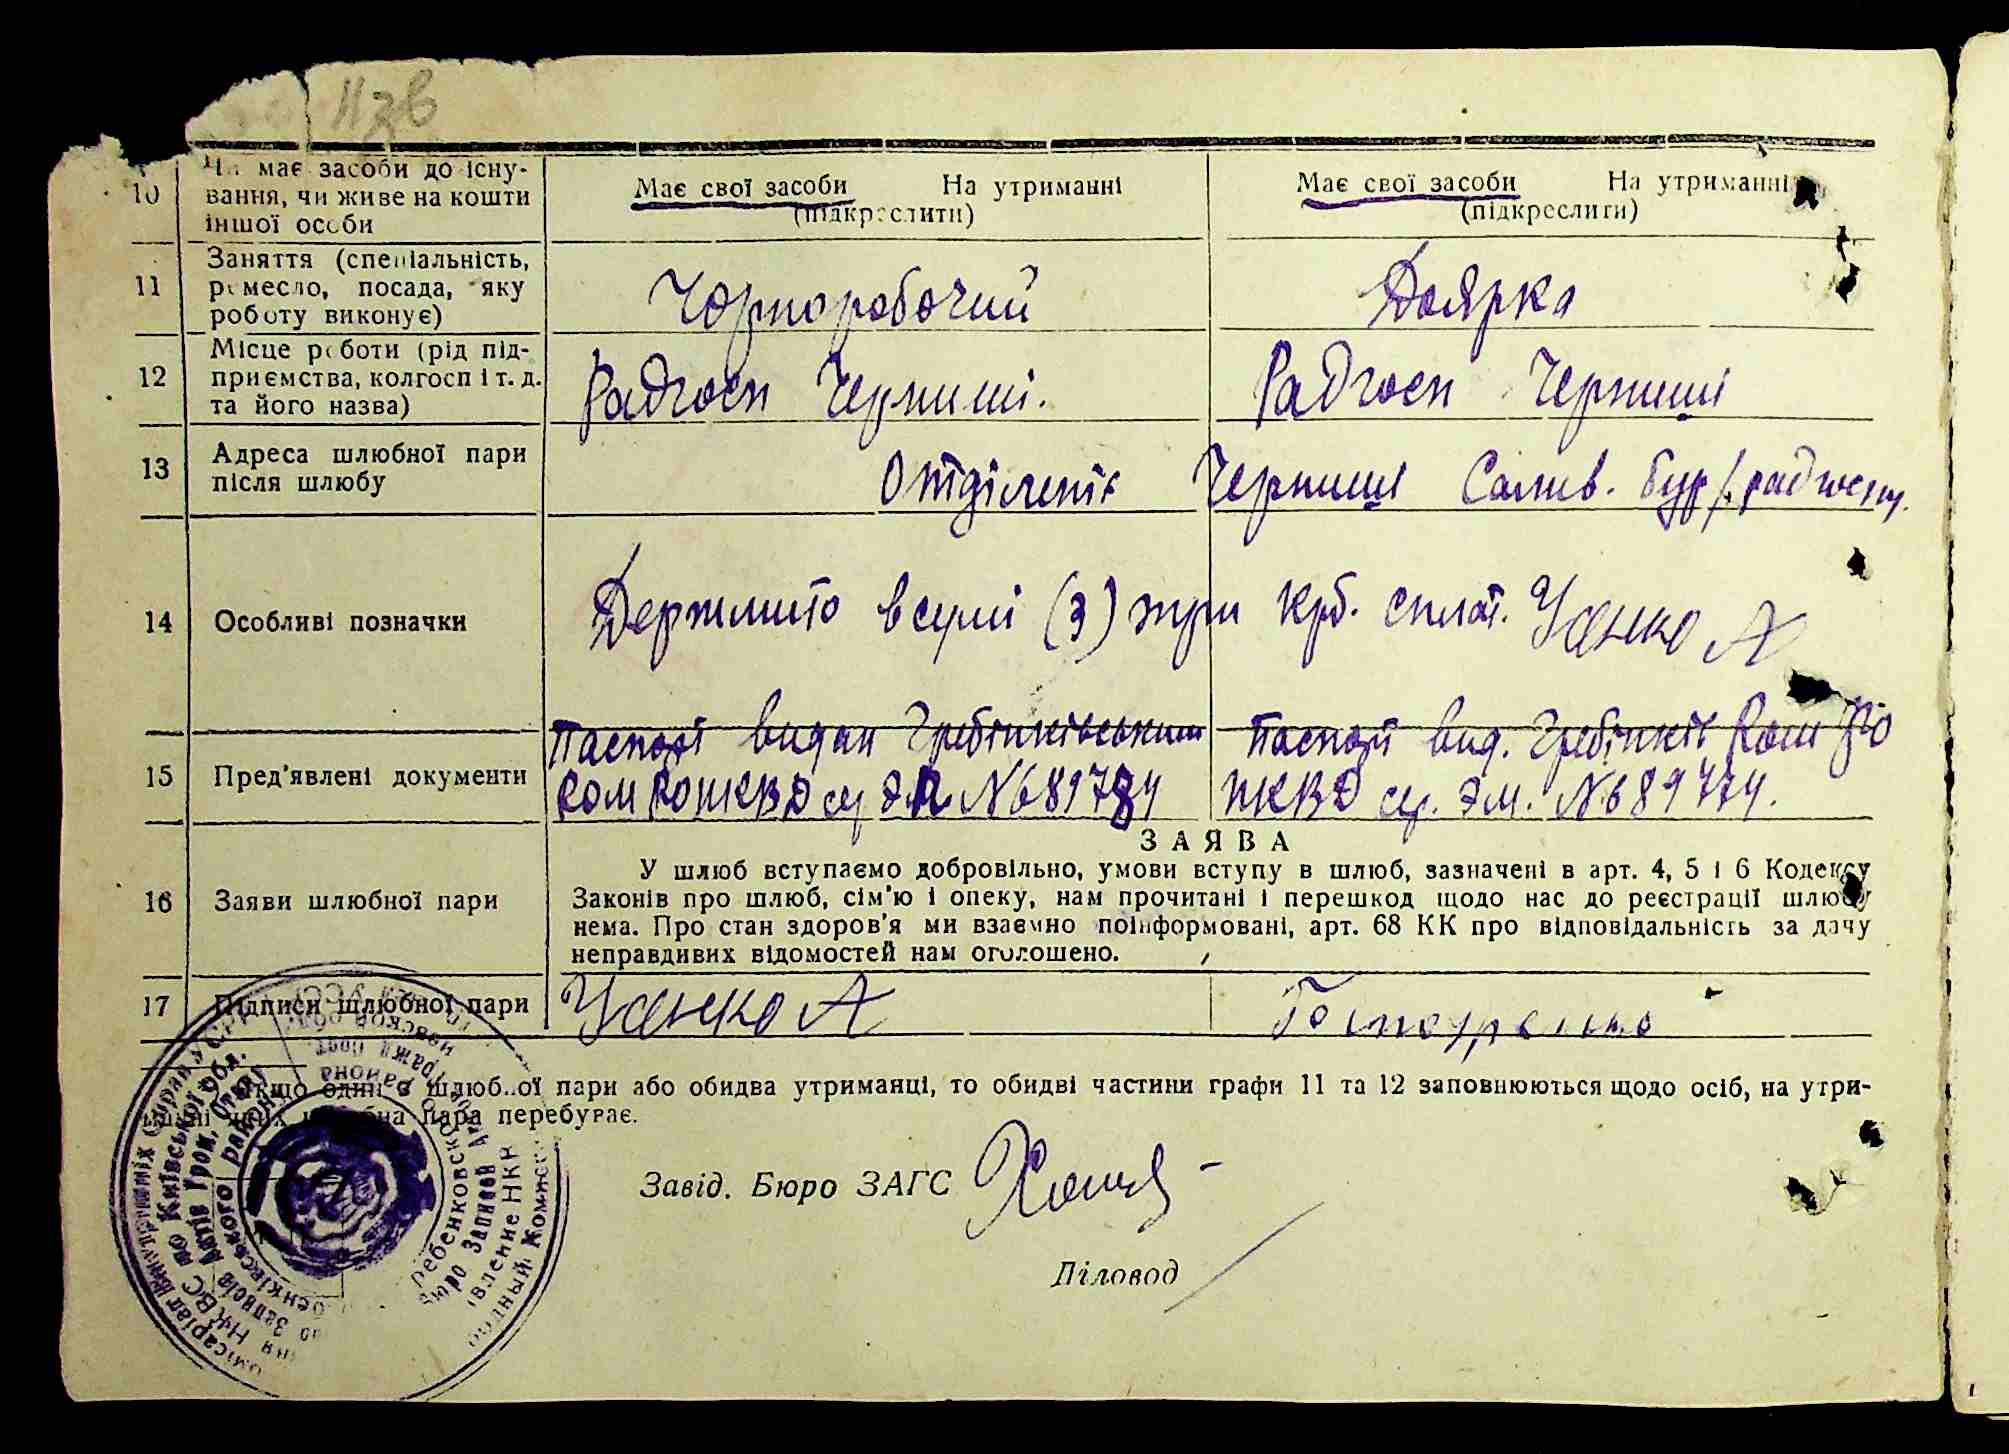 113в
10 Чи має засоби до існу-
вання, чи живе на кошти
іншої особи
Має свої засоби На утриманні
(підкреслити)
Має свої засоби На утриманні
(підкреслити)
11 Заняття (спеціальність,
ремесло, посада, яку
роботу виконує)
Чорноробочий
Доярка
12 Місце роботи (рід під-
приємства, колгосп і т. д.
та його назва)
Радгосп Черниші.
Радгосп Черниші
13 Адреса шлюбної пари
після шлюбу
Отділеніє Черниші Салив. бур/. радгоспу.
14 Особливі позначки
Держмито в сумі (3) три крб. сплат. Уленко А
15 Пред'явлені документи
Паспорт видан Гребінківським
НКВД № 689784
Паспорт вид. Гребінків
НКВД сер. ЭМ. № 689774.
16 Заяви шлюбної пари
ЗАЯВА
У шлюб вступаємо добровільно, умови вступу в шлюб, зазначені в арт. 4, 5 і 6 Кодексу
Законів про шлюб, сім'ю і опеку, нам прочитані і перешкод щодо нас до реєстрації шлюбу
нема. Про стан здоров'я ми взаємно поінформовані, арт. 68 КК про відповідальність за дачу
неправдивих відомостей нам оголошено.
17 Підписи шлюбної пари
Якщо один з шлюбної пари або обидва утриманці, то обидві частини графи 11 та 12 заповнюються щодо осіб, на утри-
манні яких шлюбна пара перебуває.
Завід. Бюро ЗАГС
Діловод